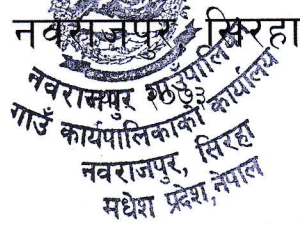 नवराजपुर, सिरहा
नवराजपुर गाउँपालिका
२०७३
गाउँ कार्यपालिकाको कार्यालय
नवराजपुर, सिरहा
मधेश प्रदेश, नेपाल